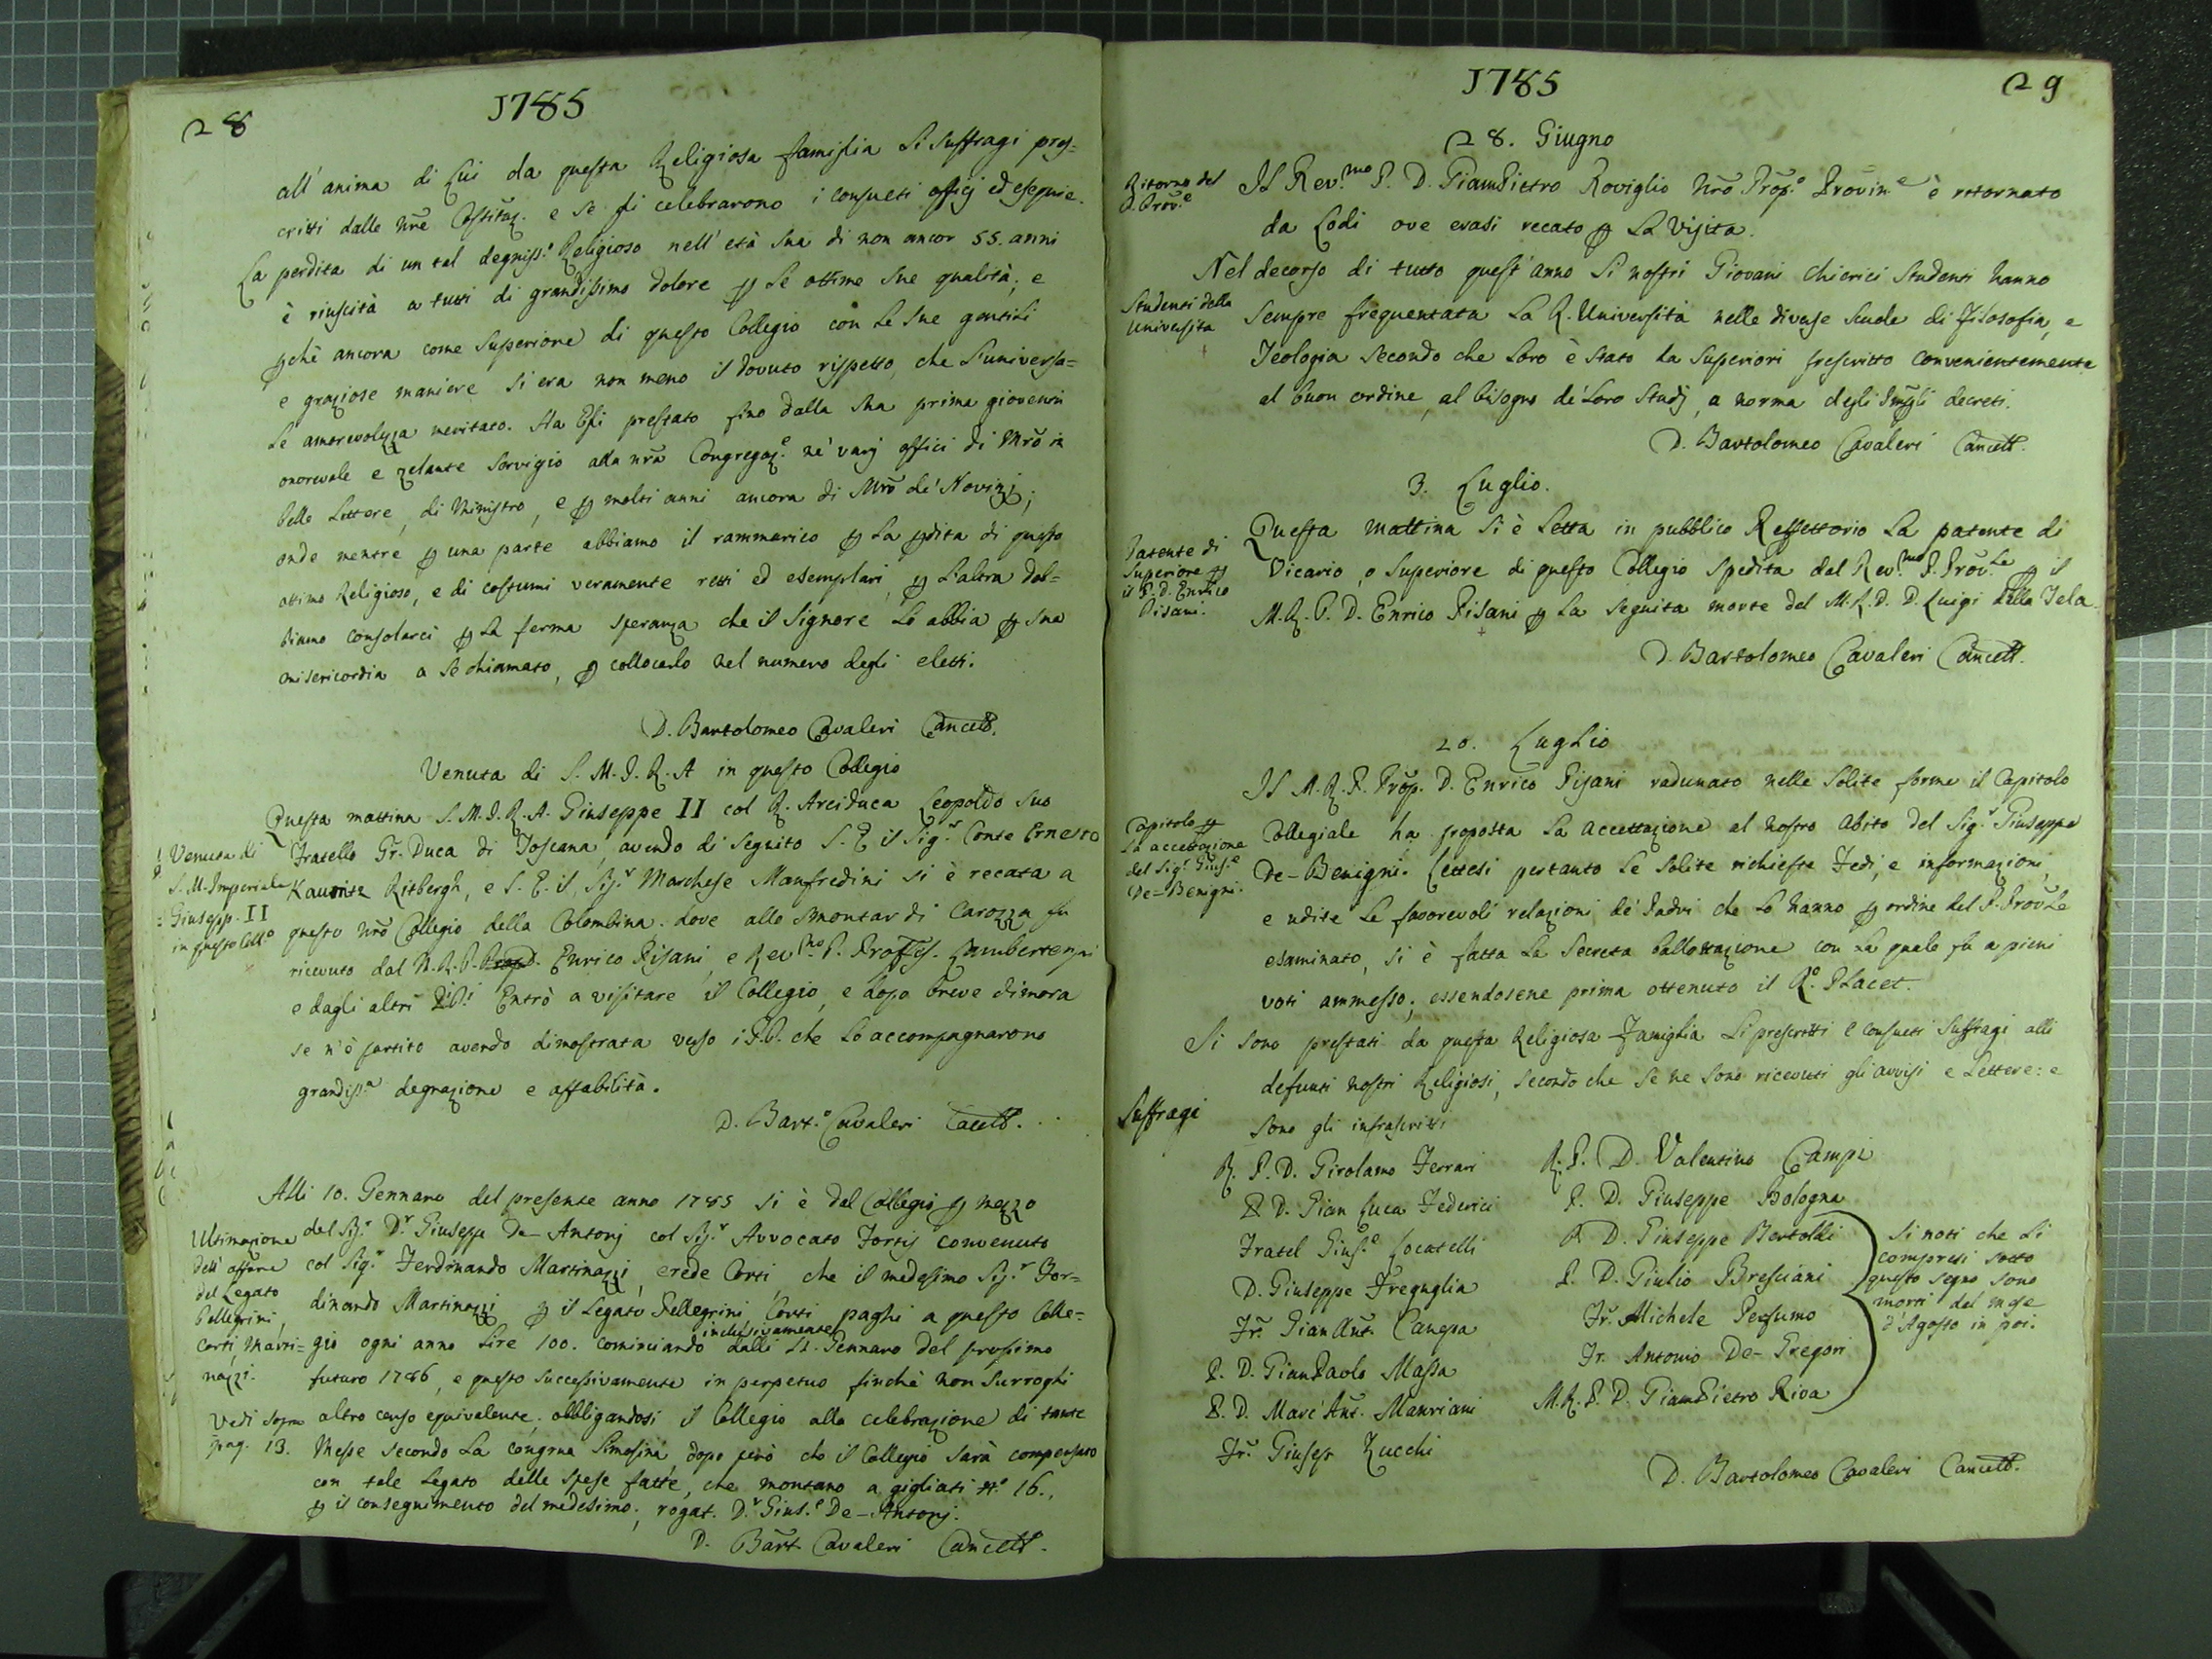 28
1785
all'anima di Lui da questa Religiosa famiglia li suffragi pres=
critti dalle nrẽ Costituz. e se gli celebrarono i consueti officj ed esequie.
La perdita di un tal degniss.º Religioso nell'età sua di non ancor 55. anni
è riuscità a tutti di grandissimo dolore ꝑ le ottime sue qualità, e
ꝑchè ancora come superiore di questo Collegio con le sue gentili
e graziose maniere si era non meno il dovuto rispetto, che l'universa=
le amorevolezza meritato. Ha Egli prestato fino dalla sua prima gioventù
onorevole e zelante servigio alla nrã Congregaz.e ne' varj offici di Mrõ in
belle Lettere, di Ministro, e ꝑ molti anni ancora di Mrõ de' Novizj;
onde mentre ꝑ una parte abbiamo il rammarico ꝑ la ꝑdita di questo
ottimo Religioso, e di costumi veramente retti ed esemplari, ꝑ l'altra dob=
biamo consolarci ꝑ la ferma speranza che il Signore lo abbia ꝑ sua
misericordia a se chiamato, ꝑ collocarlo nel numero degli eletti.
D. Bartolomeo Cavaleri Cancell.
Venuta di S. M. I. R. A in questo Collegio
Questa mattina S. M. I. R. A. Giuseppe II col R. Arciduca Leopoldo suo
Fratello Gr. Duca di Toscana, avendo di seguito S. E il Sig.r Conte Ernesto
Kaunitz Ritbergh, e S. E. il Sig.r Marchese Manfredini si è recata a
questo nrõ Collegio della Colombina. dove allo smontar di Carozza fu
ricevuto dal M. R. P. Prop D. Enrico Pisani, e Rev.mo P. Profess. Lambertenghi
e dagli altri PP.i Entrò a visitare il Collegio, e dopo breve dimora
se n'è partito avendo dimostrata verso i P.P. che lo accompagnarono
grandiss.a degnazione e affabilità.
Venuta di
S. M. Imperiale
Giusepp. II
in questo Coll.o
D. Bart.o Cavaleri Cancell.
Alli 10. Gennaro del presente anno 1785 si è dal Collegio ꝑ mezzo
del Sig.r D.r Giuseppe De-Antonj col Sig.r Avvocato Fortis convenuto
col Sig.r Ferdinando Martinazzi, erede Corti che il medesimo Sig.r Fer=
dinando Martinazzi ꝑ il Legato Pellegrini Corti paghi a questo Colle=
gio ogni anno lire 100. cominciando inclusivamente dalli 11. Gennaro del prossimo
futuro 1786, e questo successivamente in perpetuo finchè non surroghi
altro censo equivalente, obbligandosi il Collegio alla celebrazione di tante
Messe secondo la congrua limosina, dopo però che il Collegio sarà compensato
con tale Legato delle spese fatte, che montano a gigliati n.o 16.,
ꝑ il conseguimento del medesimo; rogat. D.r Gius.e De-Antonj.
Ultimazione
dell'affare
del Legato
Pellegrini,
Corti, Marti=
nazzi.
Vedi sopra
pag. 13.
D. Bart Cavaleri Cancell.
1785
29
28. Giugno
Ritorno del
P. Prov.e
Il Rev.mo P. D. GiamPietro Roviglio nrõ Prop.o Provin.e è ritornato
da Lodi ove erasi recato ꝑ la Visita.
Nel decorso di tutto quest'anno li nostri Giovani chierici studenti hanno
sempre frequentata la R. Università nelle diverse scuole di filosofia, e
Teologia secondo che loro è stato da superiori prescritto convenientemente
al buon ordine, al bisogno de' loro studj, a norma degli decreti.
Studenti della
Università
D. Bartolomeo Cavaleri Cancell.
3. Luglio.
Questa mattina si è letta in pubblico Reffettorio la patente di
Vicario, o superiore di questo Collegio spedita dal Rev.mo P. Prov.le ꝑ il
M. R. P. D. Enrico Pisani ꝑ la seguita morte del M. R. P. D. Luigi della Tela.
Patente di
Superiore ꝑ
il P. D. Enrico
Pisani.
D. Bartolomeo Cavaleri Cancell.
20. Luglio
Il M. R. P. Prop. D. Enrico Pisani radunato nelle solite forme il Capitolo
Collegiale ha proposta la accettazione al nostro abito del Sig.r Giuseppe
De-Benigni. Lettesi pertanto le solite richieste Fedi, e informazioni,
e udite le favorevoli relazioni de' Padri che lo hanno ꝑ ordine del P. Prov.le
esaminato, si è fatta la secreta ballottazione con la quale fu a pieni
voti ammesso; essendosene prima ottenuto il R.o Placet.
Capitolo ꝑ
la accettazione
del Sig.r Gius.e
De-Benigni.
Si sono prestati da questa Religiosa Famiglia li prescritti e consueti suffragi alli
defunti nostri Religiosi, secondo che se ne sono ricevuti gli avvisi e lettere: e
sono gli infrascritti
Suffragi
R. P. D. Girolamo Ferrari
P. D. Gian Luca Federici
Fratel Gius.e Locatelli
D. Giuseppe Freguglia
Fr. Gian Ant. Canepa
P. D. GianPaolo Massa
P. D. Marc'Ant. Mauriani
Fr. Giusep Zucchi
R. P. D. Valentino Campi
P. D. Giuseppe Bologna
P. D. Giuseppe Bertoldi
P. D. Giulio Bresciani
Fr. Michele Perfumo
Fr. Antonio De-Gregori
M. R. P. D. GiamPietro Riva
Si noti che li
compresi sotto
questo segno sono
morti dal mese
d'Agosto in poi.
D. Bartolomeo Cavaleri Cancell.